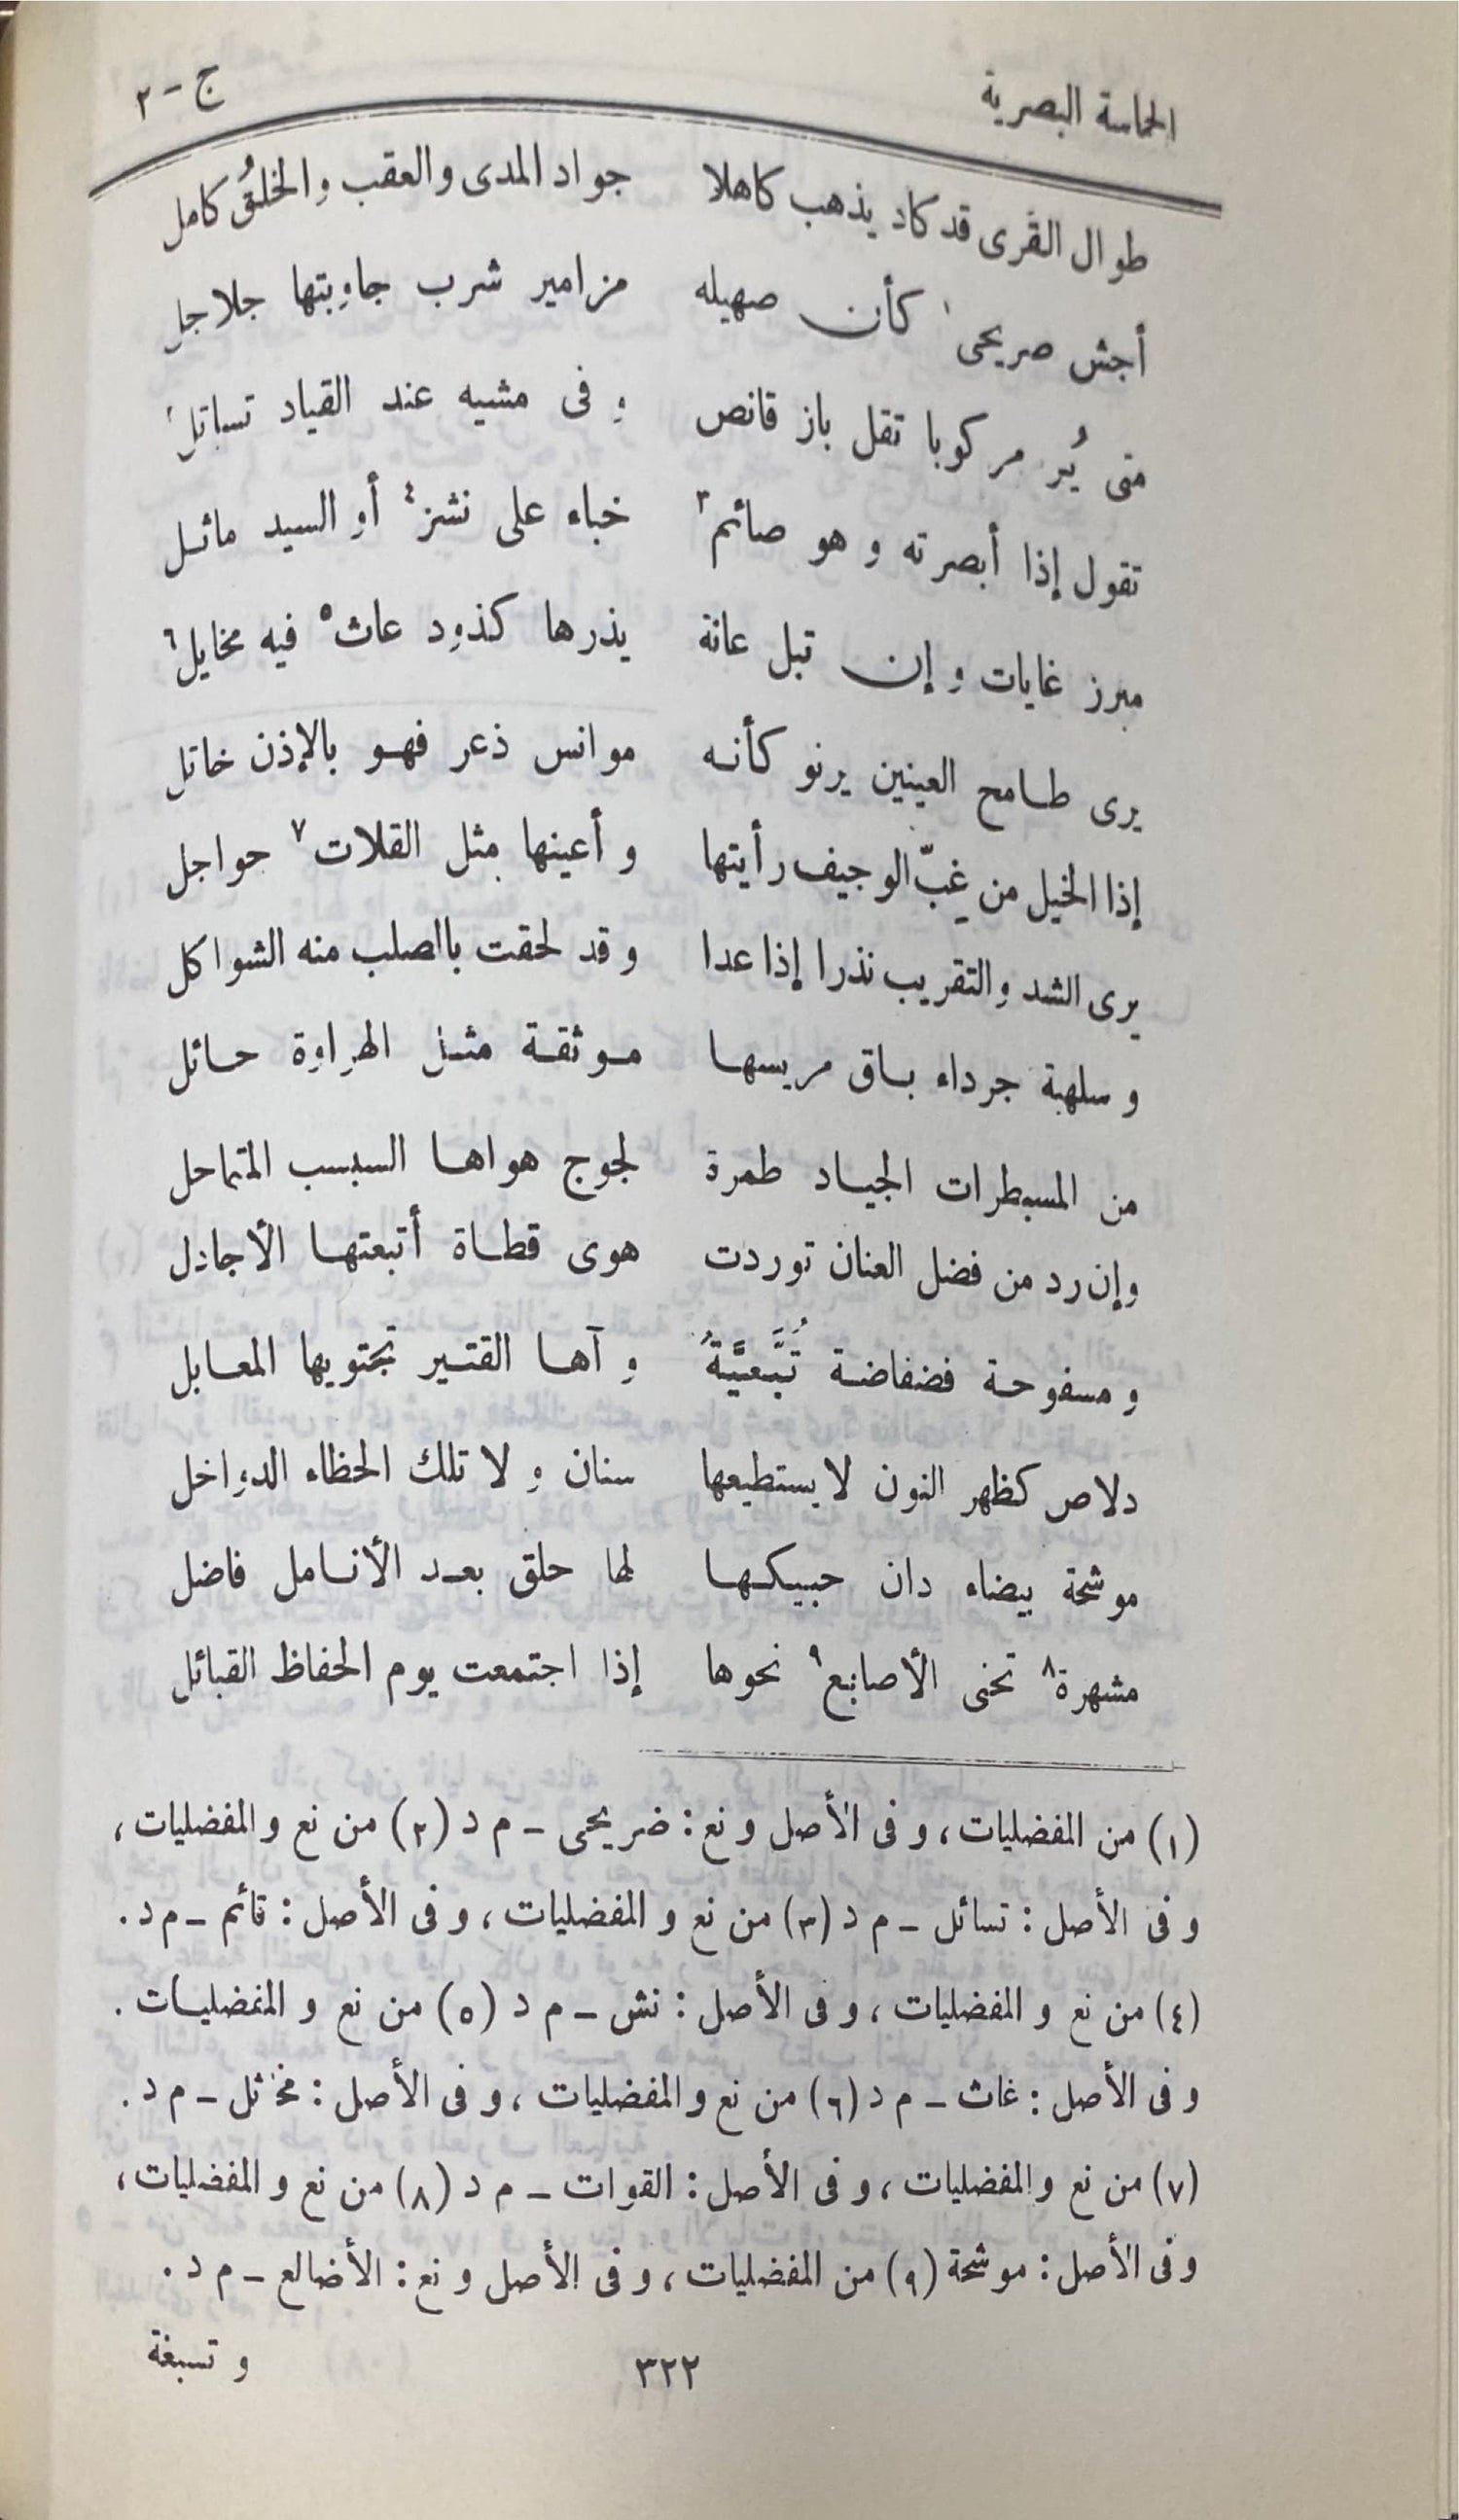 الحماسة البصرية ج - ٢
طوال القرى قد كاد يذهب كاهلا جواد المدى والعقب والخلقُ كامل
أجش صريحى١ كأن صهيله مزامير شرب جاوبتها جلاجل
متى يُر مركوبا تقل باز قانص و فى مشيه عند القياد تساتل٢
تقول إذا أبصرته و هو صائم٣ خباء على نشز٤ أو السيد ماثل
مبرز غايات و إن تبل عانة يذرها كذود عاث٥ فيه مخايل٦
يرى طامح العينين يرنو كأنه موانس ذعر فهو بالإذن خاتل
إذا الخيل من غبّ الوجيف رأيتها و أعينها مثل القلات٧ حواجل
يرى الشد والتقريب نذرا إذا عدا و قد لحقت بالصلب منه الشواكل
و سلهبة جرداء باق مريسها موثقة مثل الهراوة حائل
من المسبطرات الجياد طمرة لجوج هواها السبسب المتماحل
وإن رد من فضل العنان توردت هوى قطاة أتبعتها الأجادل
و مسفوحة فضفاضة تُبَّعيَّةُ و آها القتير تجتويها المعابل
دلاص كظهر النون لا يستطيعها سنان و لا تلك الحظاء الدواخل
موشحة بيضاء دان حبيكها لها حلق بعد الأنامل فاضل
مشهرة٨ تخنى الأصابع٩ نحوها إذا اجتمعت يوم الحفاظ القبائل
(١) من المفضليات، و فى الأصل و نع: ضريحى – م د (٢) من نع و المفضليات،
و فى الأصل: تسائل – م د (٣) من نع و المفضليات، و فى الأصل: قائم – م د.
(٤) من نع و المفضليات، و فى الأصل: نش – م د (٥) من نع و المفضليات.
و فى الأصل: غاث – م د (٦) من نع و المفضليات، و فى الأصل: مخثل – م د.
(٧) من نع و المفضليات، و فى الأصل: القوات – م د (٨) من نع و المفضليات،
و فى الأصل: موشحة (٩) من المفضليات، و فى الأصل و نع: الأضالع – م د.
٣٢٢ و تسبغة